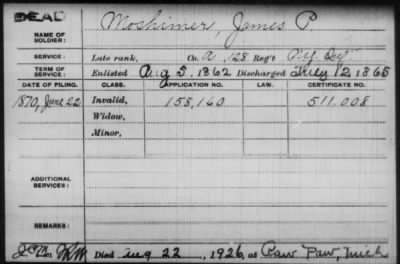 DEAD
NAME OF SOLDIER: Moshimer, James P
SERVICE: Late rank, Co. A, 128 Reg't N.Y. Inf
TERM OF SERVICE: Enlisted Aug 5, 1862 Discharged July 12, 1865
DATE OF FILING. CLASS. APPLICATION NO. LAW. CERTIFICATE NO.
1870, June 22 Invalid, 158,160 511.008
Widow,
Minor,
ADDITIONAL SERVICES:
REMARKS:
Died Aug 22, 1926, at Paw Paw, Mich